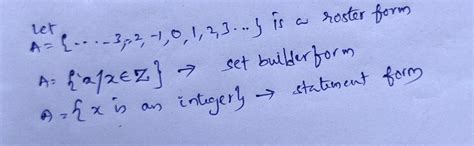 let
A = {.....-3,-2,-1,0,1,2,3...} is a roster form
A = {x/x∈Z} → set builder form
A = {x is an integer} → statement form